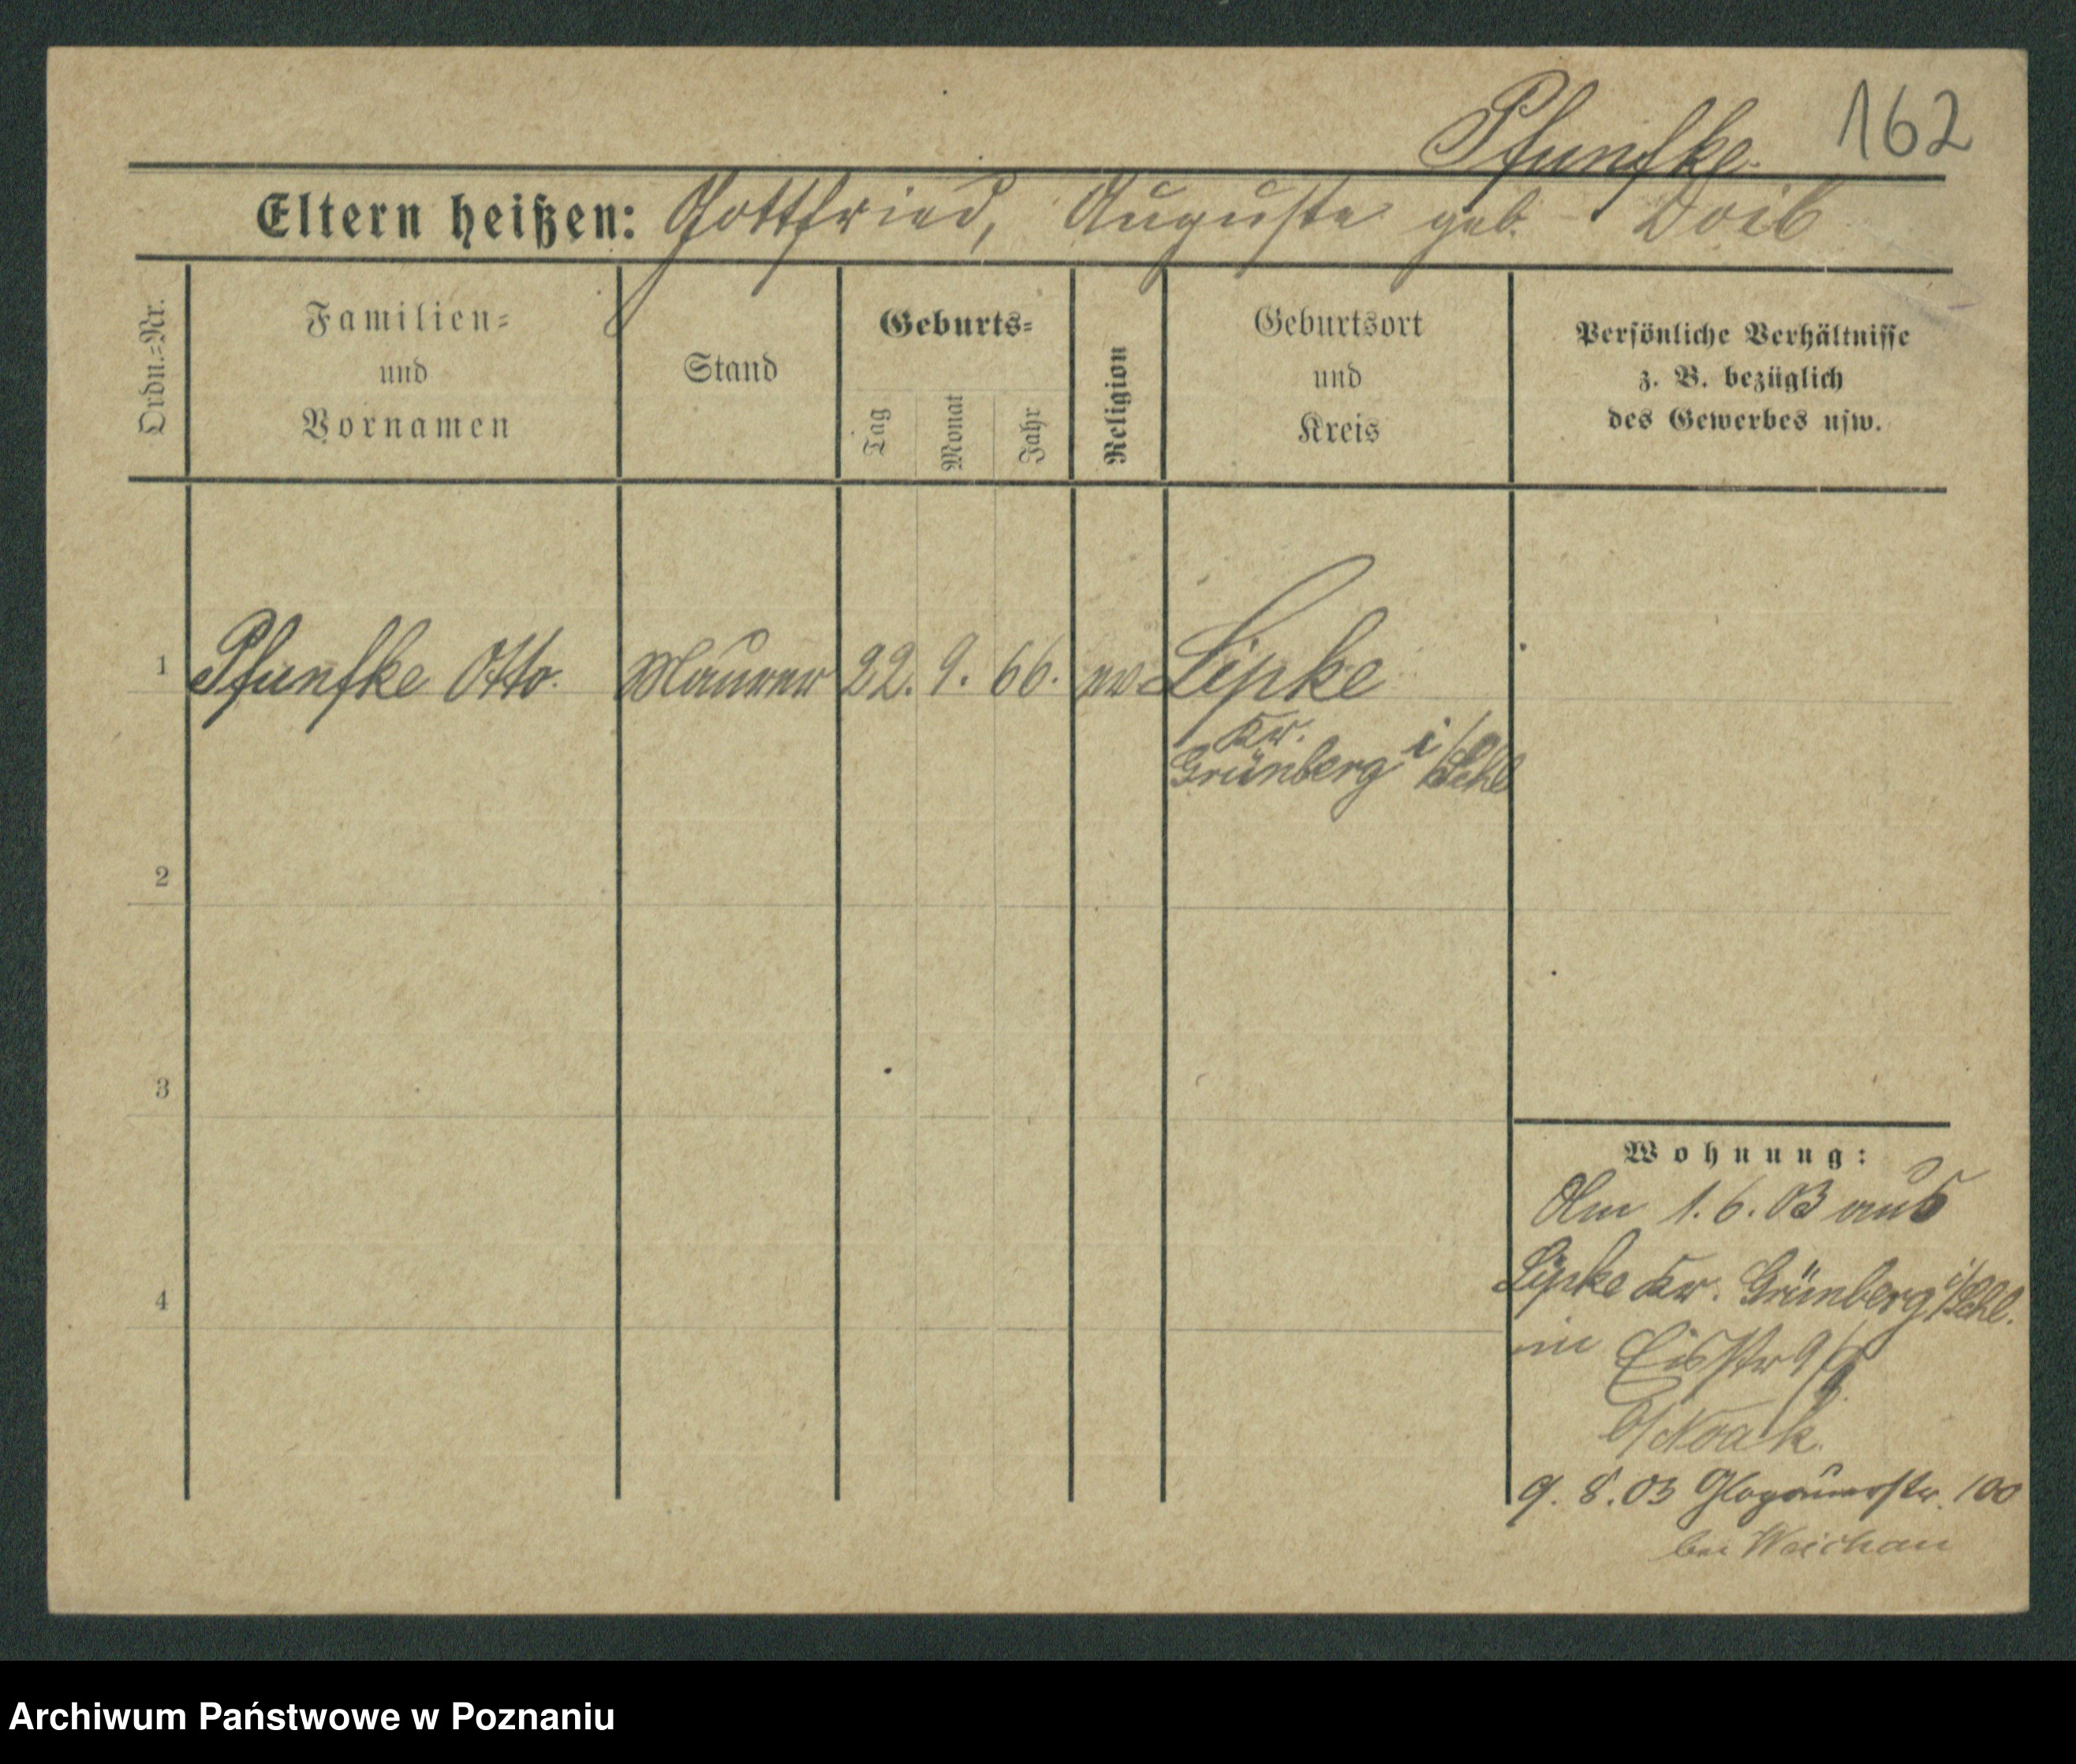 Pfunfke 162
Eltern heißen: Gottfried, Auguste geb. Doil
Ordn.=Nr.
Familien=
und
Vornamen
Stand
Geburts=
Tag
Monat
Jahr
Religion
Geburtsort
und
Kreis
Persönliche Verhältnisse
z. B. bezüglich
des Gewerbes usw.
1 Pfunfke Otto. Maurer 22. 9. 66. ev Lipke
Kr.
Grünberg i/Schl
2
3
4
Wohnung:
Am 1. 6. 03 aus
Lipke Kr. Grünberg i/Schl.
in
b/Noak.
9. 8. 03 Glogauerstr. 100
bei Weichan
Archiwum Państwowe w Poznaniu